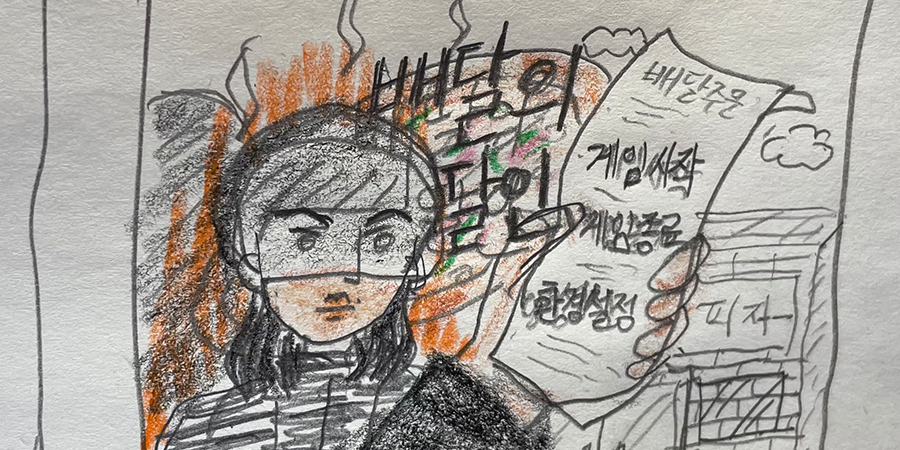 배달의
달인
배달주문
게임시작
게임종료
환경설정
피자